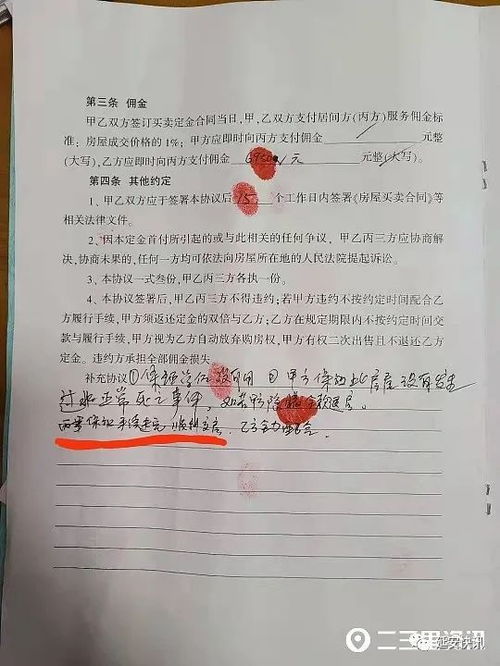 第三条 佣金
甲乙双方签订买卖定金合同当日,甲、乙双方支付居间方(丙方)服务佣金标
准:房屋成交价格的1%;甲方应即时向丙方支付佣金 / 元整
(大写),乙方应即时向丙方支付佣金 元整(大写)。
第四条 其他约定
1、甲乙双方应于签署本协议后 15 个工作日内签署《房屋买卖合同》等
相关法律文件。
2、因本定金首付所引起的或与此相关的任何争议,甲乙丙三方应协商解
决,协商未果的,任何一方均可依法向房屋所在地的人民法院提起诉讼。
3、本协议一式叁份,甲乙丙三方各执一份。
4、本协议签署后,甲乙丙三方不得违约;若甲方违约不按约定时间配合乙
方履行手续,甲方须返还定金的双倍与乙方;乙方在规定期限内不按约定时间交
款与履行手续,甲方视为乙方自动放弃购房权,甲方有权二次出售且不退还乙方
定金。违约方承担全部佣金损失
补充协议①保证学位没有用 ②甲方保证此房屋没有发生
过非正常死亡事件,如若 全款退房。
丙方保证 顺利交房,乙方全力配合。
二三里资讯
延安快讯